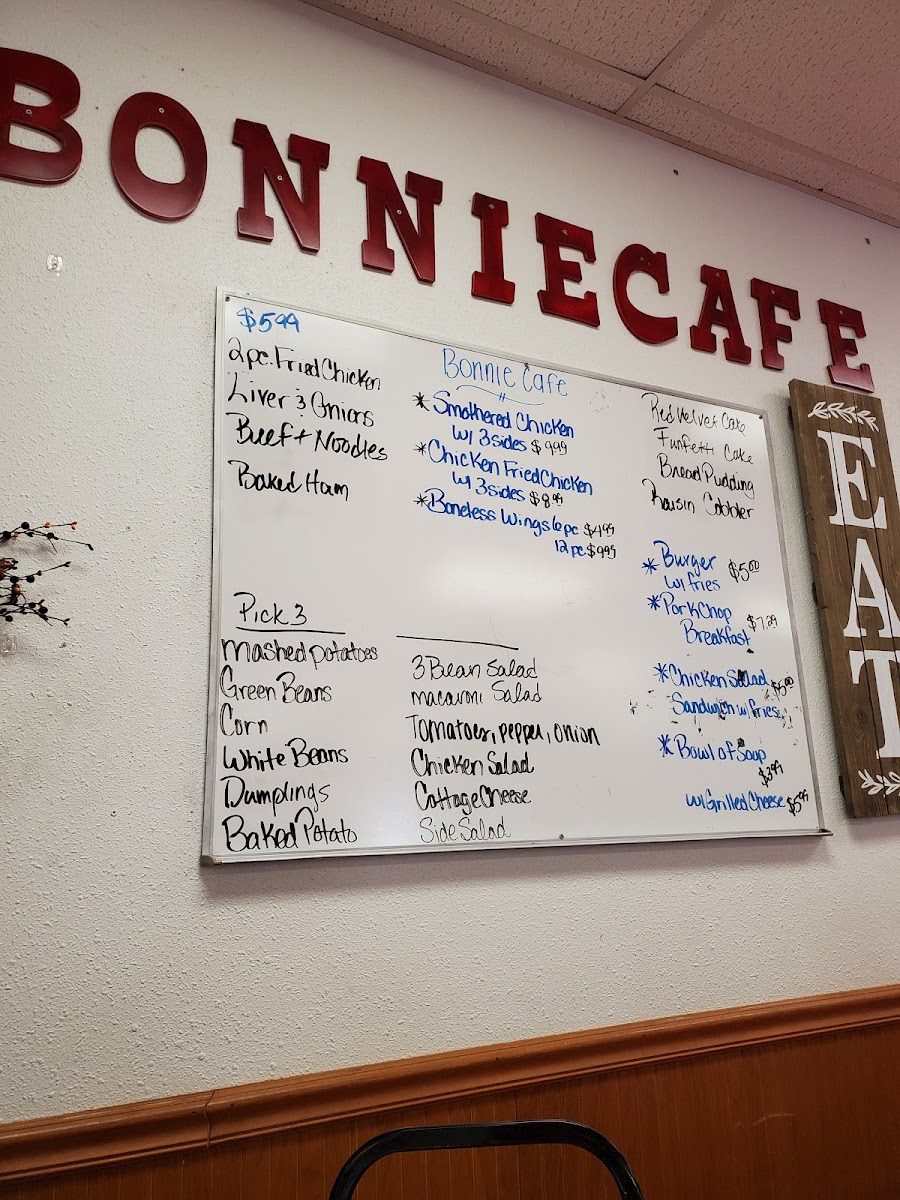 BONNIECAFE
$5.99
2pc. Fried Chicken
Liver & Onions
Beef + Noodles
Baked Ham
Pick 3
mashed potatoes
Green Beans
Corn
White Beans
Dumplings
Baked Potato
Bonnie Cafe
* Smothered Chicken
w/ 3 sides $9.99
* Chicken Fried Chicken
w/ 3 sides $8.99
* Boneless Wings 6pc $4.99
12pc $9.99
3 Bean Salad
macaroni Salad
Tomatoes, pepper, onion
Chicken Salad
Cottage Cheese
Side Salad
Red Velvet Cake
Funfetti Cake
Bread Pudding
Raisin Cobbler
* Burger $5.00
w/ fries
* Pork Chop $7.29
Breakfast
* Chicken Salad $6.00
Sandwich w/ fries
* Bowl of Soup
$3.99
w/ Grilled Cheese $5.99
EAT